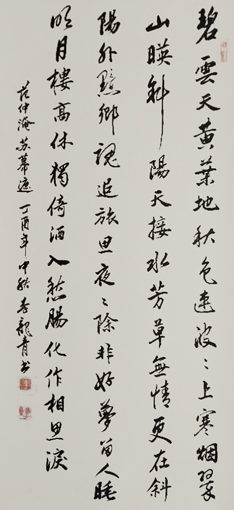 碧雲天黃葉地秋色連波〻上寒烟翠
山暎斜陽天接水芳草無情更在斜
陽外黯鄉魂追旅思夜〻除非好夢留人睡
明月樓高休獨倚酒入愁腸化作相思淚
范仲淹苏幕遮丁酉年中秋李龍青書